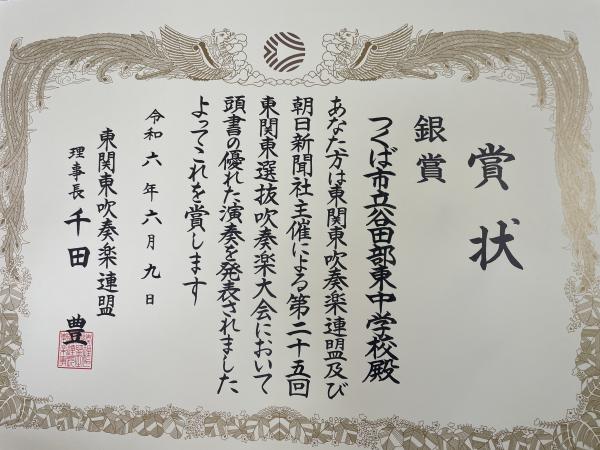 賞状
銀賞
つくば市立谷田部東中学校殿
あなた方は東関東吹奏楽連盟及び
朝日新聞社主催による第二十五回
東関東選抜吹奏楽大会において
頭書の優れた演奏を発表されました
よってこれを賞します
令和六年六月九日
東関東吹奏楽連盟
理事長 千田 豊